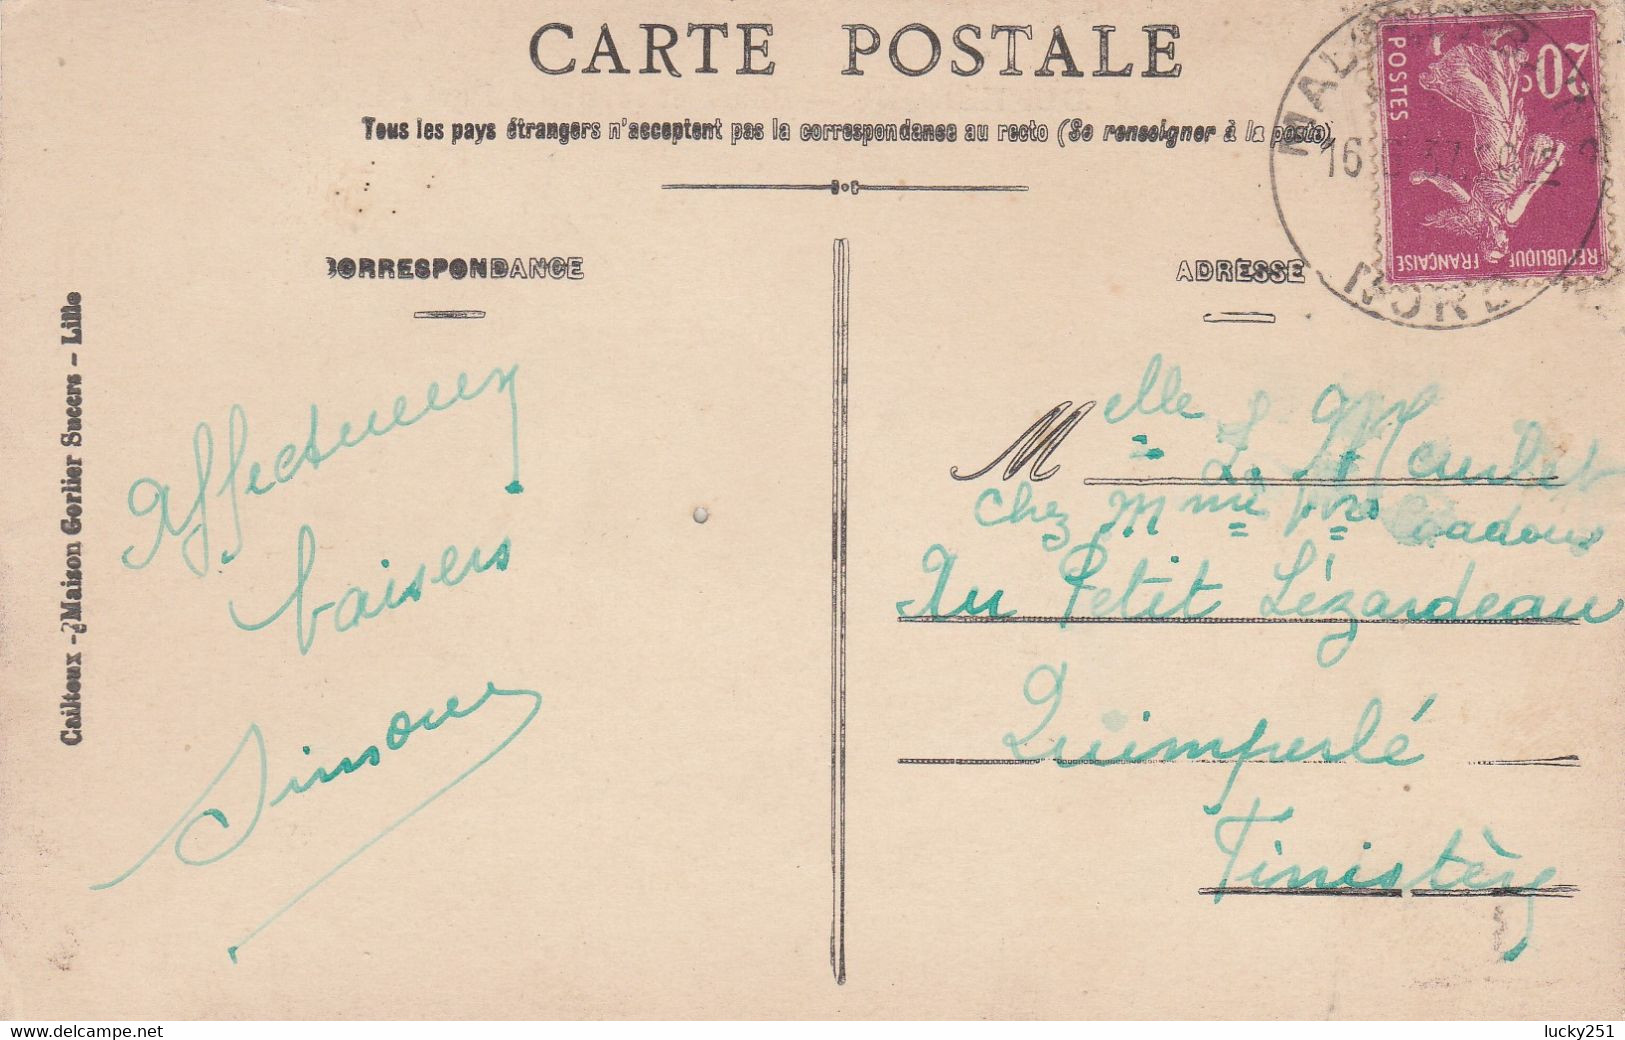 CARTE POSTALE
Tous les pays étrangers n'acceptent pas la correspondance au recto (Se renseigner à la poste)
CORRESPONDANCE
ADRESSE
Cailteux - Maison Gorlier Succrs - Lille
Affectueux
baisers
Simone
Melle
chez Mme
Au Petit Lézardeau
Quimperlé
Finistère
20c
POSTES
REPUBLIQUE FRANÇAISE
16 37
NORD
delcampe.net
lucky251